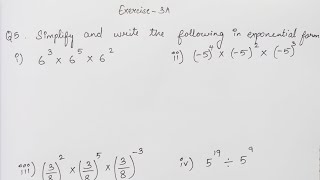 Exercise-3A
Q5. Simplify and write the following in exponential form
i) 6³ × 6⁵ × 6² ii) (-5)⁴ × (-5)² × (-5)³
iii) (3/8)² × (3/8)⁵ × (3/8)⁻³ iv) 5¹⁹ ÷ 5⁹